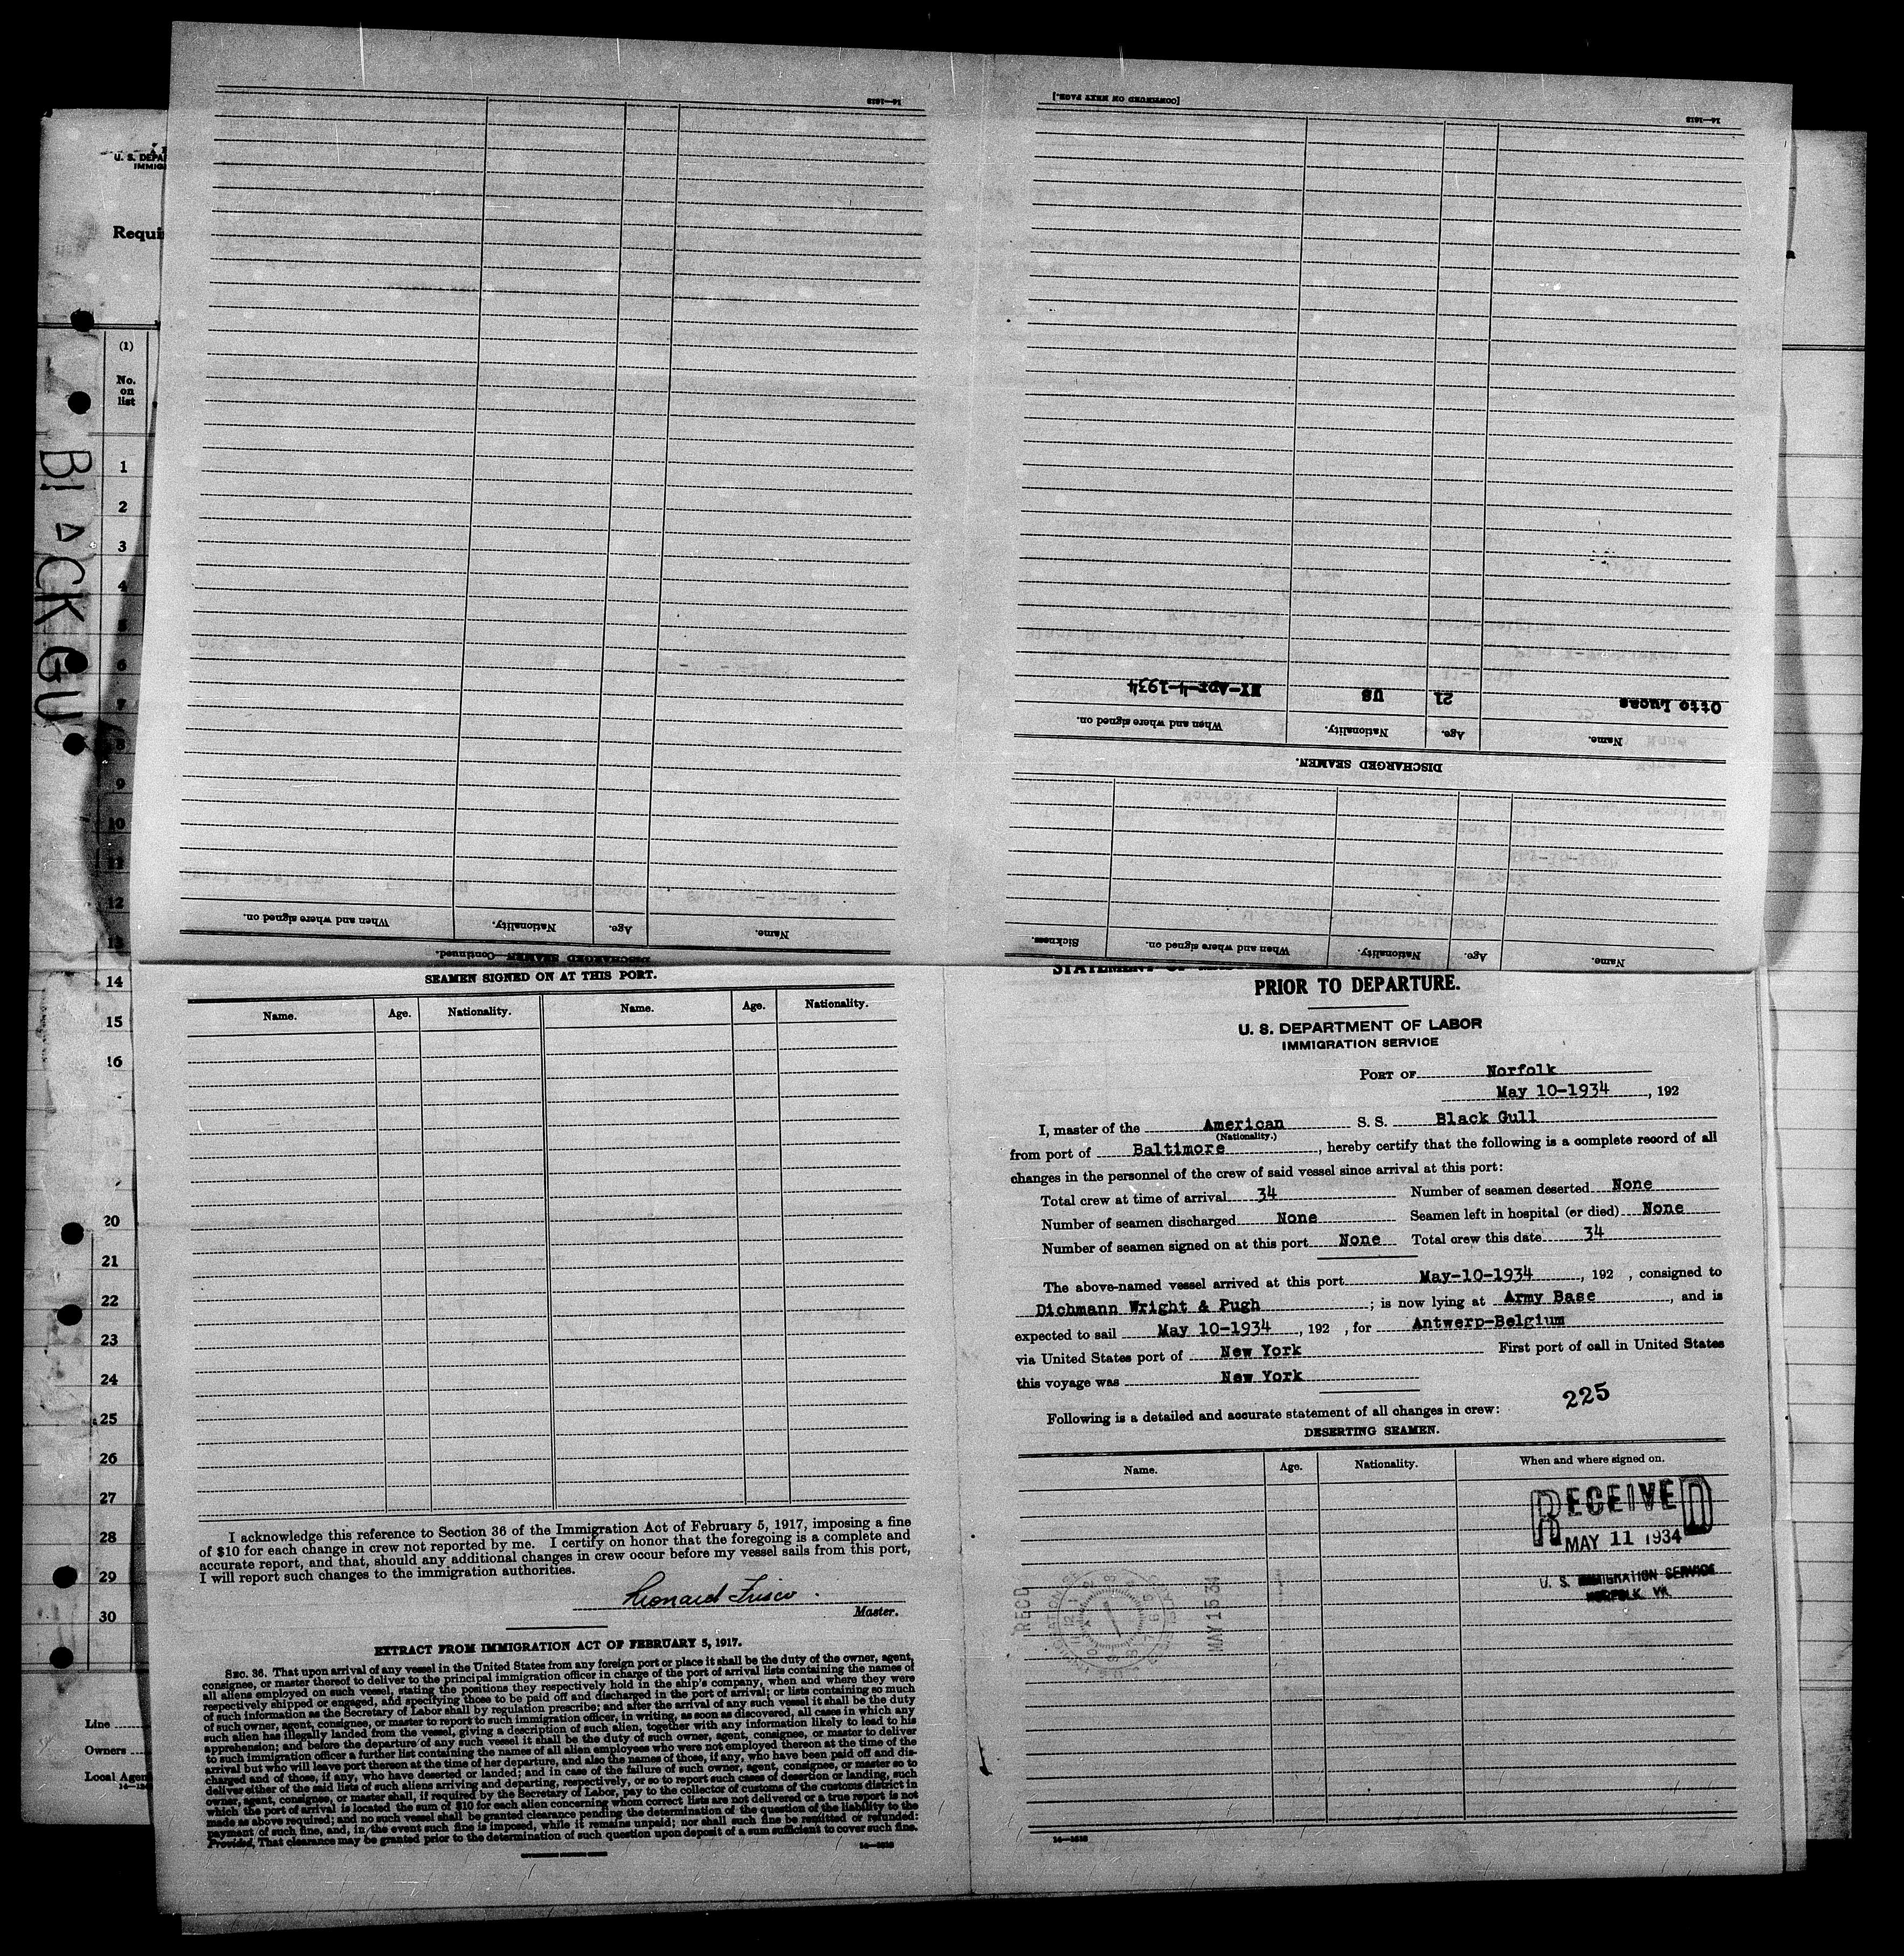 U. S. DEPA
IMMIG
Requi
(1)
No.
on
list
1
2
3
4
5
6
7
8
9
10
11
12
13
14
15
16
20
21
22
23
24
25
26
27
28
29
30
Line
Owners
Local Agen
BLACK GU
14—1618
DISCHARGED SEAMEN—Continued.
Name. Age. Nationality. When and where signed on.
Name. Age. Nationality. When and where signed on. Sickness.
DISCHARGED SEAMEN.
Name. Age. Nationality. When and where signed on.
Otto Lucas 21 US NY-Apr-4-1934
14—1618
[CONTINUED ON NEXT PAGE.]
SEAMEN SIGNED ON AT THIS PORT.
Name. Age. Nationality. Name. Age. Nationality.
I acknowledge this reference to Section 36 of the Immigration Act of February 5, 1917, imposing a fine
of $10 for each change in crew not reported by me. I certify on honor that the foregoing is a complete and
accurate report, and that, should any additional changes in crew occur before my vessel sails from this port,
I will report such changes to the immigration authorities.
Leonard Frisco.
Master.
EXTRACT FROM IMMIGRATION ACT OF FEBRUARY 5, 1917.
SEC. 36. That upon arrival of any vessel in the United States from any foreign port or place it shall be the duty of the owner, agent,
consignee, or master thereof to deliver to the principal immigration officer in charge of the port of arrival lists containing the names of
all aliens employed on such vessel, stating the positions they respectively hold in the ship's company, when and where they were
respectively shipped or engaged, and specifying those to be paid off and discharged in the port of arrival; or lists containing so much
of such information as the Secretary of Labor shall by regulation prescribe; and after the arrival of any such vessel it shall be the duty
of such owner, agent, consignee, or master to report to such immigration officer, in writing, as soon as discovered, all cases in which any
such alien has illegally landed from the vessel, giving a description of such alien, together with any information likely to lead to his
apprehension; and before the departure of any such vessel it shall be the duty of such owner, agent, consignee, or master to deliver
to such immigration officer a further list containing the names of all alien employees who were not employed thereon at the time of the
arrival but who will leave port thereon at the time of her departure, and also the names of those, if any, who have been paid off and dis-
charged and of those, if any, who have deserted or landed; and in case of the failure of such owner, agent, consignee, or master so to
deliver either of the said lists of such aliens arriving and departing, respectively, or so to report such cases of desertion or landing, such
owner, agent, consignee, or master shall, if required by the Secretary of Labor, pay to the collector of customs of the customs district in
which the port of arrival is located the sum of $10 for each alien concerning whom correct lists are not delivered or a true report is not
made as above required; and no such vessel shall be granted clearance pending the determination of the question of the liability to the
payment of such fine, and, in the event such fine is imposed, while it remains unpaid; nor shall such fine be remitted or refunded:
Provided, That clearance may be granted prior to the determination of such question upon deposit of a sum sufficient to cover such fine.
14—1618
PRIOR TO DEPARTURE.
U. S. DEPARTMENT OF LABOR
IMMIGRATION SERVICE
PORT OF Norfolk
May 10-1934, 192
I, master of the American S. S. Black Gull
(Nationality.)
from port of Baltimore, hereby certify that the following is a complete record of all
changes in the personnel of the crew of said vessel since arrival at this port:
Total crew at time of arrival 34 Number of seamen deserted None
Number of seamen discharged None Seamen left in hospital (or died) None
Number of seamen signed on at this port None Total crew this date 34
The above-named vessel arrived at this port May-10-1934, 192 , consigned to
Dichmann Wright & Pugh; is now lying at Army Base, and is
expected to sail May 10-1934, 192 , for Antwerp-Belgium
via United States port of New York First port of call in United States
this voyage was New York
225
Following is a detailed and accurate statement of all changes in crew:
DESERTING SEAMEN.
Name. Age. Nationality. When and where signed on.
RECEIVED
MAY 11 1934
U. S. IMMIGRATION SERVICE
NORFOLK, VA.
REC'D
MAY 15 34
14—1618